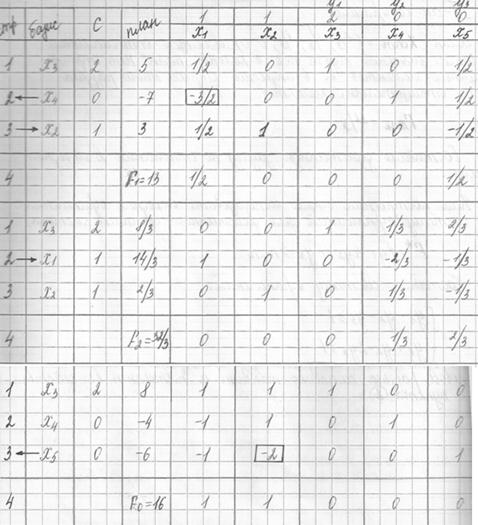 y₁ y₂ y₃
стр базис С план 1 1 2 0 0
x₁ x₂ x₃ x₄ x₅
1 x₃ 2 5 1/2 0 1 0 1/2
2 ← x₄ 0 -7 -3/2 0 0 1 1/2
3 → x₂ 1 3 1/2 1 0 0 -1/2
4 F₁=13 1/2 0 0 0 1/2
1 x₃ 2 8/3 0 0 1 1/3 2/3
2 → x₁ 1 14/3 1 0 0 -2/3 -1/3
3 x₂ 1 2/3 0 1 0 1/3 -1/3
4 F₂=32/3 0 0 0 1/3 2/3
1 x₃ 2 8 1 1 1 0 0
2 x₄ 0 -4 -1 1 0 1 0
3 ← x₅ 0 -6 -1 -2 0 0 1
4 F₀=16 1 1 0 0 0